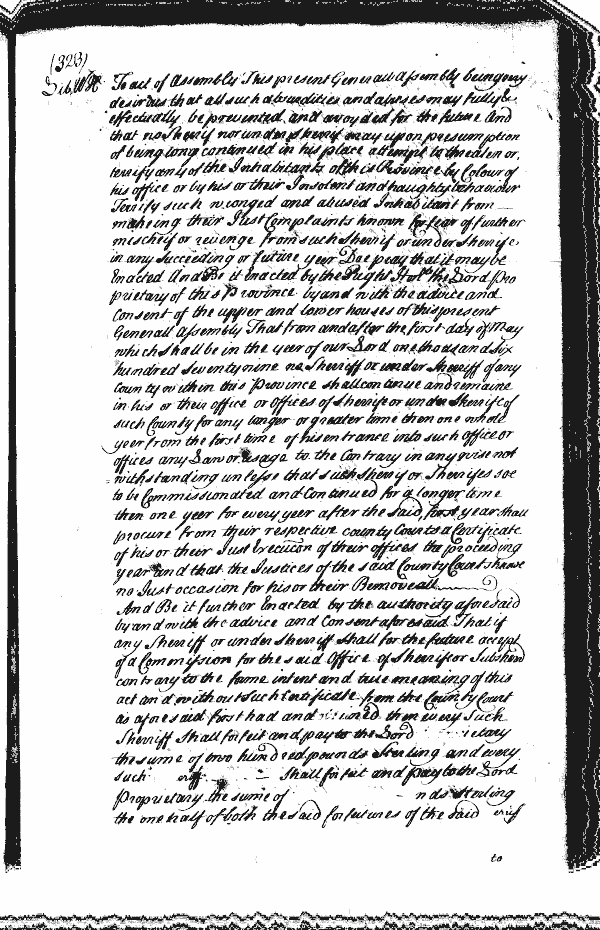 (323)
Lib. W H
To act of Assembly This present Generall Assembly being very
desirous that all such absurdities and abuses may fully &
effectually be prevented and avoyded for the future And
that no Sherrif nor under sherrif may upon presumption
of being long continued in his place attempt to threaten or
terrify any of the Inhabitants of this Province by Colour of
his office or by his or their Insolent and haughty behaviour
Terrify such wronged and abused Inhabitant from
makeing their Just Complaints known for fear of further
mischeif or revenge from such Sherrif or under Sherrife
in any Succeeding or future year Doe pray that it may be
Enacted And Be it Enacted by the Right Honble the Lord Pro
prietary of this Province by and with the advice and
Consent of the upper and lower houses of this present
Generall Assembly That from and after the first day of May
which shall be in the year of our Lord one thousand six
hundred Seventy nine no Sherriff or under Sherriff of any
County within this Province shall continue and remaine
in his or their office or offices of Sherrife or under Sherrife of
such County for any longer or greater time then one whole
year from the first time of his entrance into such office or
offices any Law or usage to the Contrary in any wise not
withstanding unlesse that such Sherrif or Sherrifes soe
to be Commissionated and Continued for a longer time
then one year for every year after the said first year shall
procure from their respective County Courts a Certificate
of his or their Just Execution of their offices the preceeding
year and that the Justices of the said County Court
no Just occasion for his or their Removeall
And Be it further Enacted by the authority aforesaid
by and with the advice and Consent aforesaid That if
any Sherriff or under Sherriff shall for the future accept
of a Commission for the said Office of Sherrife or
contrary to the same intent and true meaning of this
act and without such Certificate from the County Court
as aforesaid first had and then every Such
Sherriff Shall forfeit and pay to the Lord
the sume of two hundred pounds Sterling and every
such Shall forfeit and pay to the Lord
Proprietary the sume of Sterling
the one half of both the said forfeitures of the said
to